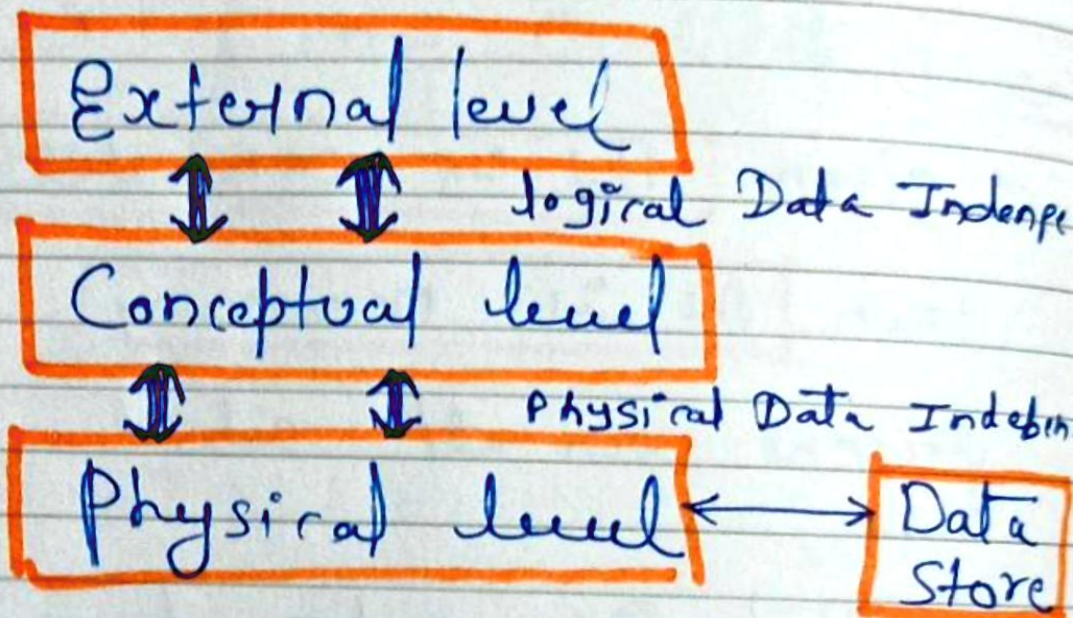 External level
logical Data Indenpe
Conceptual level
Physical Data Indebin
Physical level
Data
Store